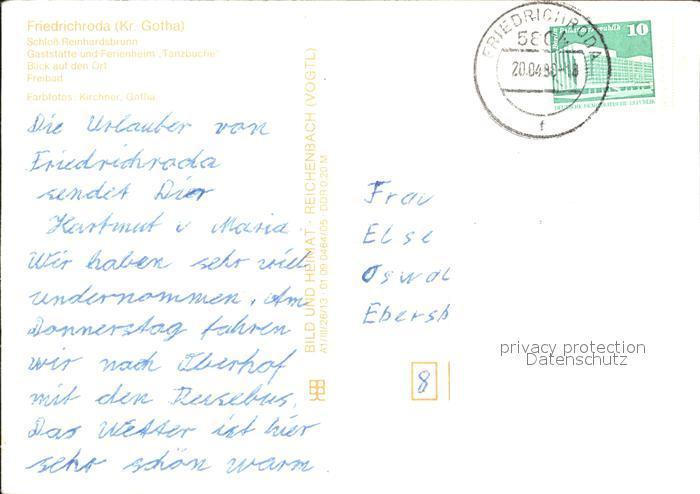 Friedrichroda (Kr. Gotha)
Schloß Reinhardsbrunn
Gaststätte und Ferienheim „Tanzbuche"
Blick auf den Ort
Freibad
Farbfotos: Kirchner, Gotha
Die Urlauber von
Friedrichroda
sendet Dir
Hartmut u Maria.
Wir haben sehr viel
undernommen. Am
Donnerstag fahren
wir nach Oberhof
mit den Reisebus.
Das Wetter ist hier
sehr schön warm.
BILD UND HEIMAT · REICHENBACH (VOGTL)
A1/III/26/13 · 01 09 0464/05 · DDR 0,20 M
FRIEDRICHRODA
20.04.80-18
f
10
DEUTSCHE DEMOKRATISCHE REPUBLIK
Frau
Else
Oswal
Ebersb
8
privacy protection
Datenschutz